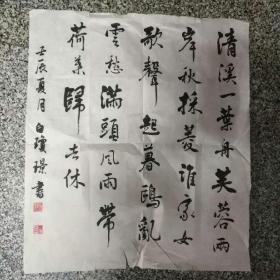 清溪一葉舟芙蓉兩
岸秋採菱誰家女
歌聲起暮鷗亂
雲愁滿頭風雨帶
荷葉歸去休
壬辰夏月白璞璟書